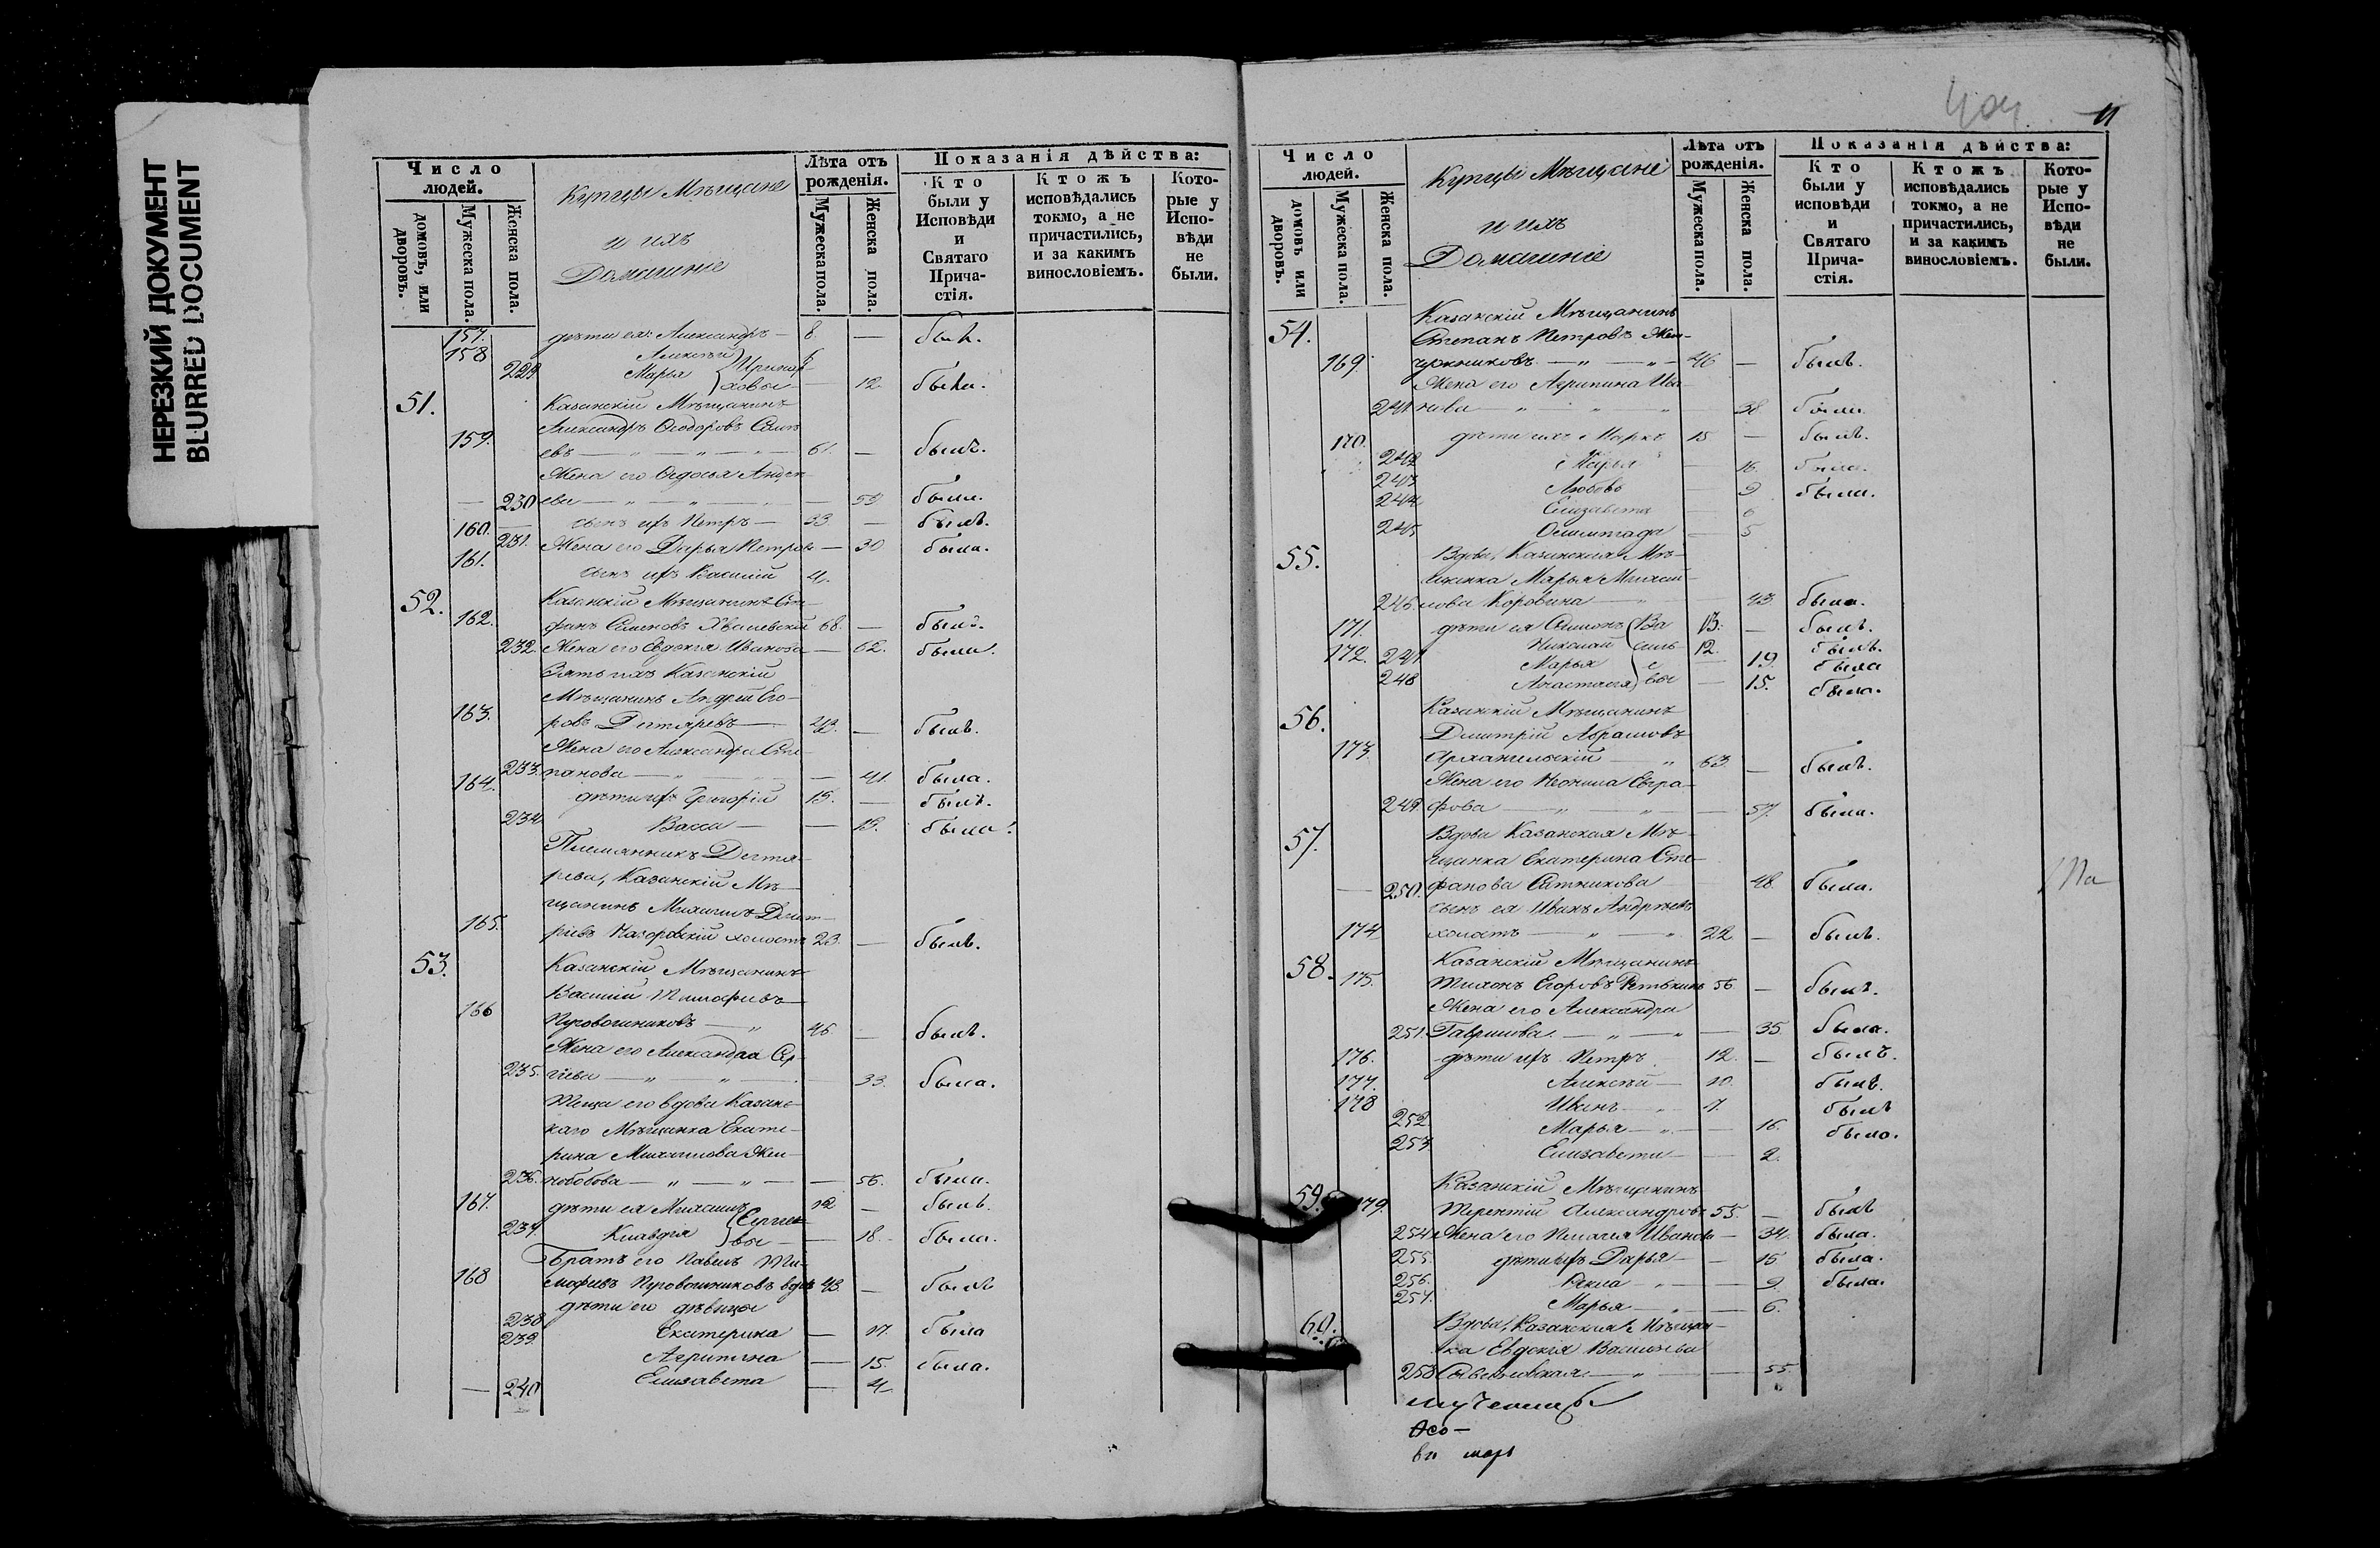 НЕРЕЗКИЙ ДОКУМЕНТ
BLURRED DOCUMENT
Число людей.
домовъ, или дворовъ.
Мужеска пола.
Женска пола.
Купцы Мѣщане
и ихъ
Домашніе
Лѣта отъ рожденія.
Мужеска пола.
Женска пола.
Показанія дѣйства:
Кто были у Исповѣди и Святаго Прича-стія.
Ктожъ исповѣдались токмо, а не причастились, и за какимъ винословіемъ.
Кото-рые у Испо-вѣди не были.
157. дѣти ея: Александръ — 8. — былъ.
158 Алексѣй 6
229 Марья — 12. была.
51. Казанскій Мѣщанинъ
Александръ Ѳеодоровъ
159. евъ 61. — былъ.
Жена его Ѳедосья Андре
230 ева — 59 была.
160. сынъ ихъ Петръ — 33. — былъ.
231. Жена его Дарья Петрова — 30 была.
161. сынъ ихъ Василій 4.
52. Казанскій Мѣщанинъ Сте
162. фанъ Семеновъ Хвалевскій 68. — былъ.
232. Жена его Евдокія Иванова — 62. была.
Зять ихъ Казанскій
Мѣщанинъ Андрей Его-
163. ровъ Дегтяревъ — 43. — былъ.
Жена его Александра Сте
233. панова — 41. была.
164. дѣти ихъ Григорій 15. — былъ.
234 Васса — 13. была.
Племянникъ Дегтя-
рева, Казанскій Мѣ-
щанинъ Михаилъ
165. холостъ 23. — былъ.
53. Казанскій Мѣщанинъ
Василій Тимофѣевъ
166 Пуговошниковъ — 46 — былъ.
Жена его Александра Сер-
235. гіева — 33. была.
Теща его вдова Казанс-
каго Мѣщанка Екате-
рина Михаилова Жел-
236. нобобова — 56. была.
167. дѣти ея Михаилъ 12 — былъ.
237. Клавдія Сергіе вы — 18. была.
Братъ его Павелъ Ти-
168 мофѣевъ Пуговошниковъ вдовъ 43. — былъ
дѣти его дѣвицы
238 Екатерина — 17. была
239 Агрипина — 15. была.
240 Елизавета — 4.
404 11
Число людей.
домовъ или дворовъ.
Мужеска пола.
Женска пола.
Купцы Мѣщане
и ихъ
Домашніе
Лѣта отъ рожденія.
Мужеска пола.
Женска пола.
Показанія дѣйства:
Кто были у исповѣди и Святаго Прича-стія.
Ктожъ исповѣдались токмо, а не причастились, и за какимъ винословіемъ.
Кото-рые у Испо-вѣди не были.
54. Казанскій Мѣщанинъ
Степанъ Петровъ Жем-
169. чужниковъ — 46 — былъ.
Жена его Агрипина Ива
241 нова — 38. была.
170. дѣти ихъ Маркъ 15 — былъ.
242 Марья — 16. была.
243 Любовь — 9 была.
244 Елизавета — 6
245 Олимпіада — 5
55. Вдова, Казанская Мѣ-
щанка Марья Михай-
246. лова Коровина — 43. была.
171. дѣти ея Симонъ Ва 13. — былъ.
172. Николай силь 12. былъ.
247 Марья е — 19. была
248 Анастасія вы — 15. была.
56. Казанскій Мѣщанинъ
Дмитрій Абрамовъ
173. Архангельскій — 63. — былъ.
Жена его Неонила Евгра-
249. фова — 57. была.
57. Вдова Казанская Мѣ-
щанка Екатерина Сте-
250. фанова Ситникова 48. была.
сынъ ея Иванъ Андреевъ
174 холостъ — 22. — былъ.
58. Казанскій Мѣщанинъ
175. Тихонъ Егоровъ Ретькинъ 56. — былъ.
Жена его Александра
251. Гаврилова — 35. была.
176. дѣти ихъ Петръ 12. — былъ.
177. Алексѣй — 10. былъ.
178 Иванъ — 7. былъ
252. Марья — 16. была.
253. Елизавета — 2.
59. Казанскій Мѣщанинъ
179. Терентій Александровъ 55. — былъ
254 Жена его Пелагія Иванова — 34. была.
255. дѣти ихъ Дарья — 15 была.
256. Ѳекла — 9. была.
257. Марья — 6.
60. Вдова, Казанская Мѣщан-
ка Евдокія Васильева
258 — 55.